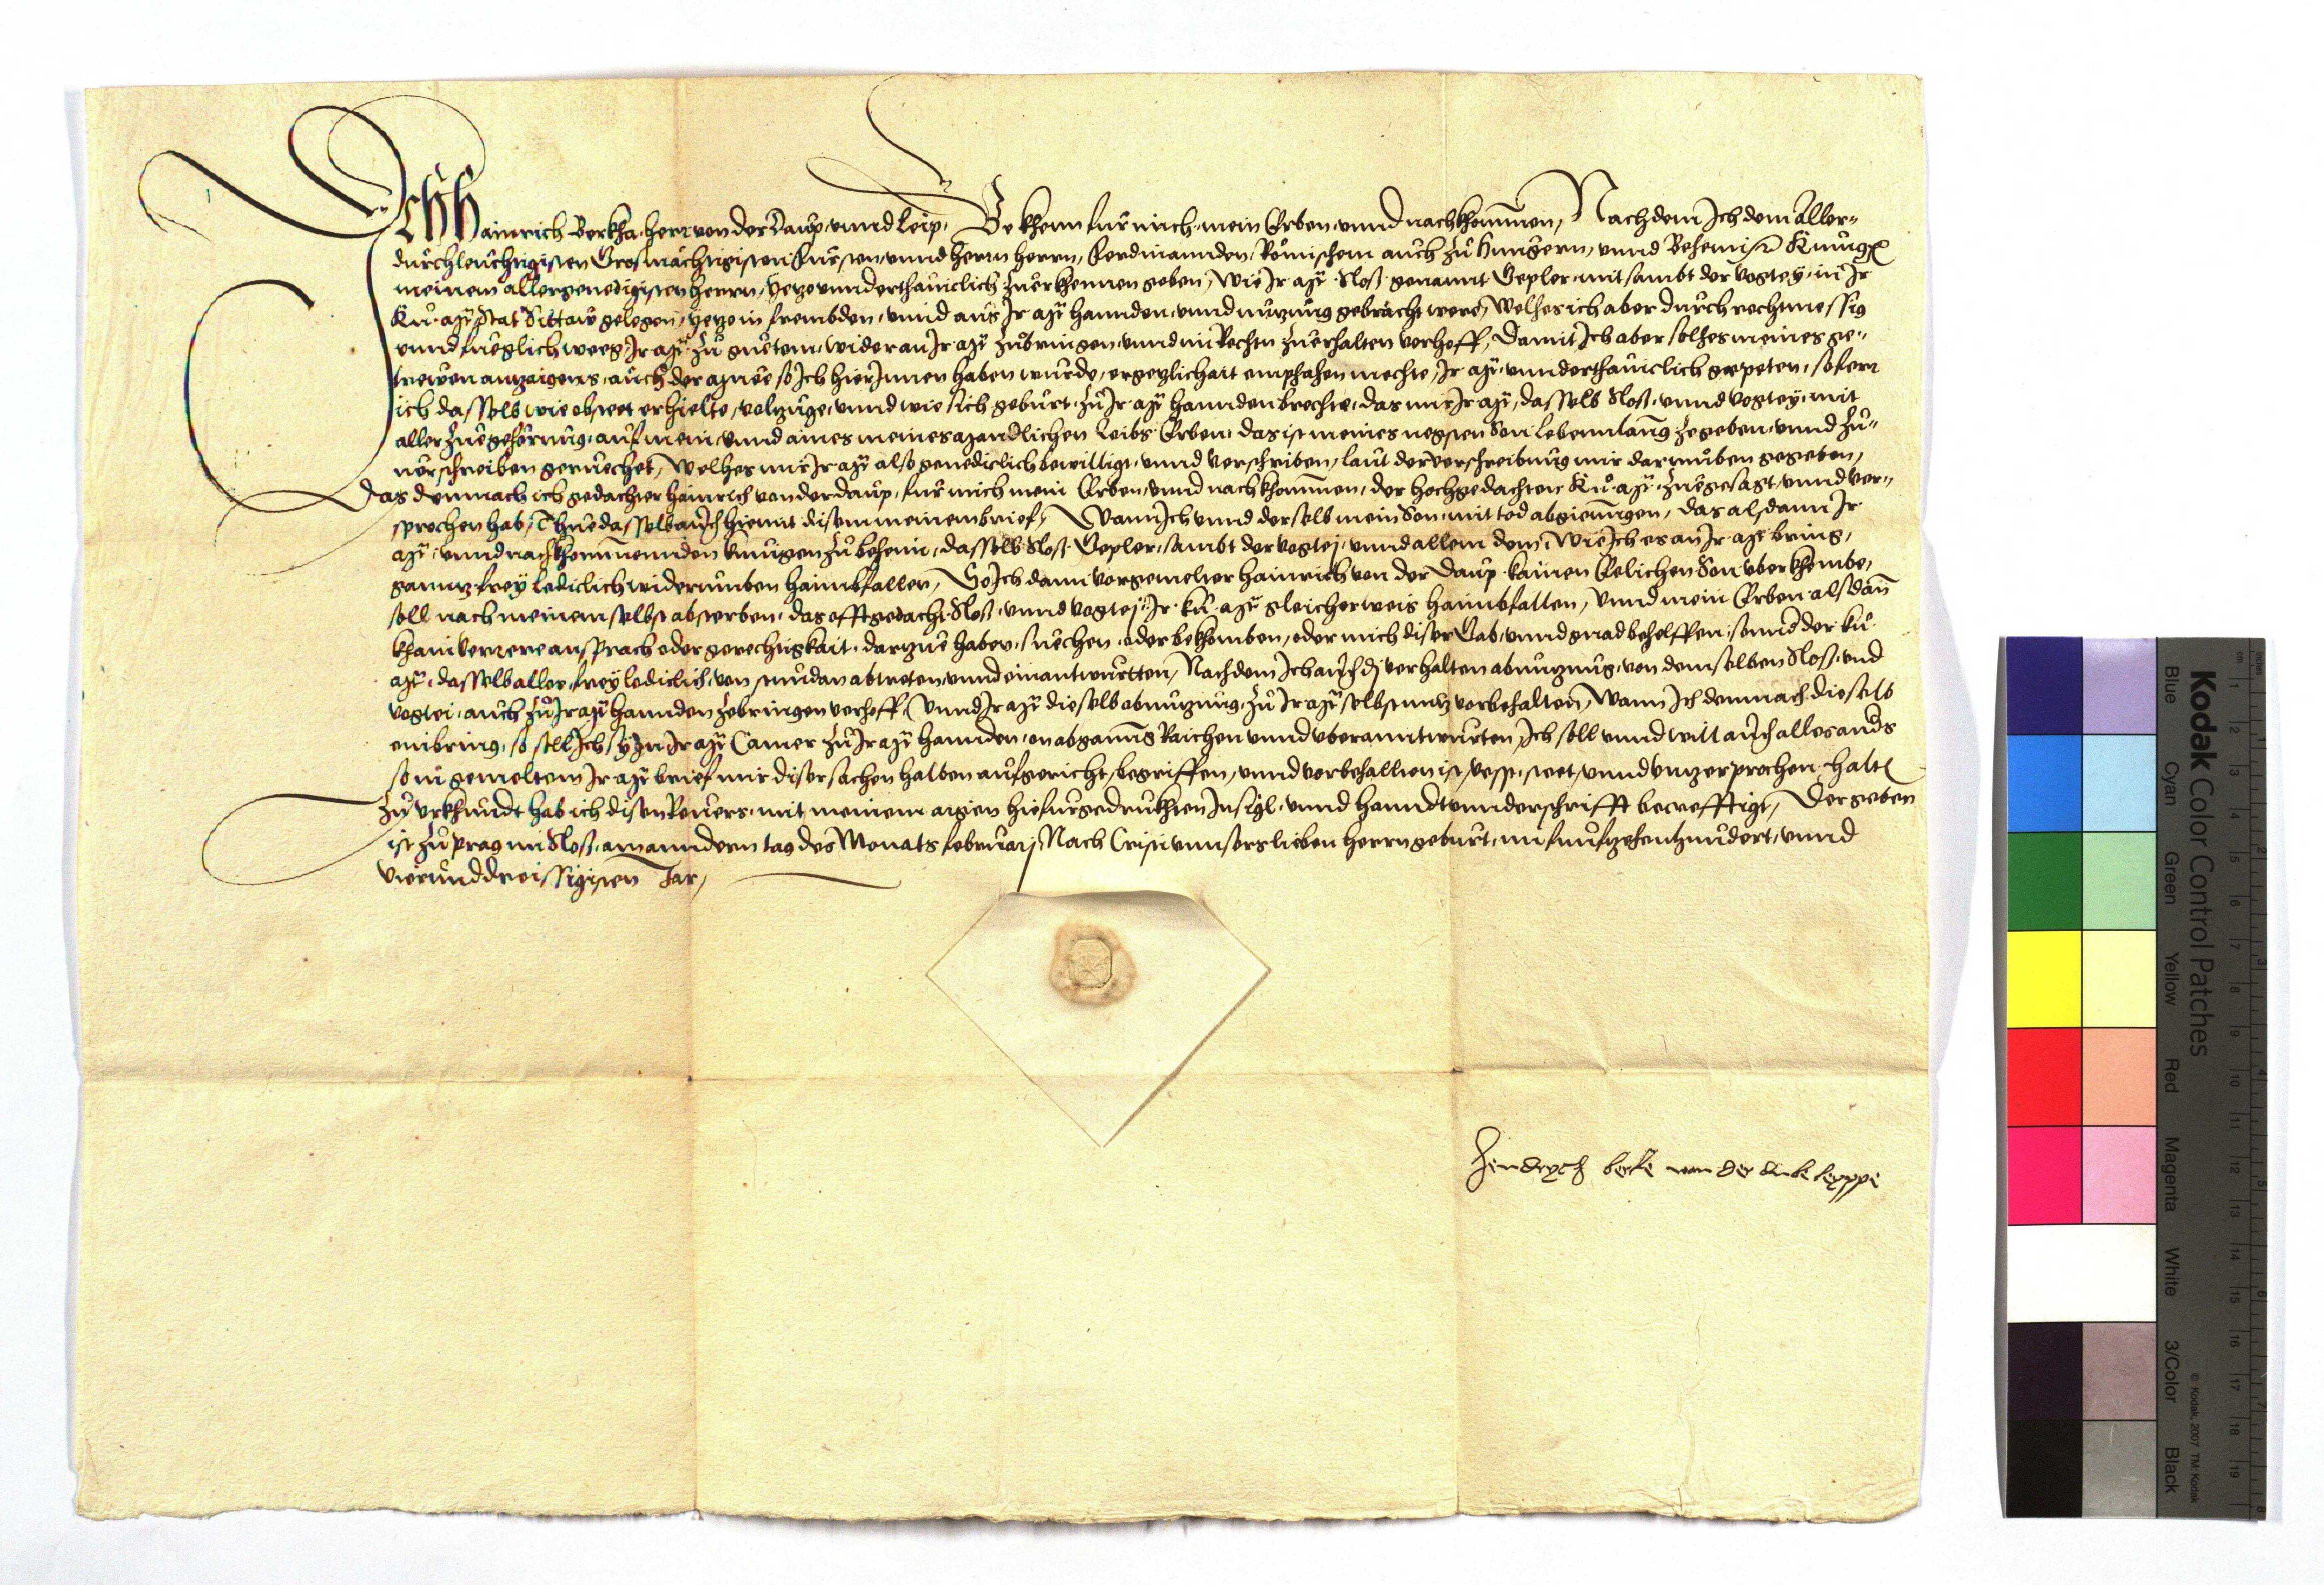 Ich Hainrich Berkha herr von der Daup vnnd Leip, Bekhenn fur mich mein Erben vnnd nachkhommen, Nachdem Ich dem Aller-
durchleuchtigisten Grosmachtigisten Fursten vnnd herrn herrn, Ferdinannden, Römischem auch zu Hungern, vnnd Behemisch Kunig
meinem allergenedigisten herrn, yetzo vnnderthaniclich zuerkhennen geben, Wie Ir Mt Sloß genannt Gepler mit sambt der Vogtey in Ir
Ku Mt Stat Sittaw gelegen, yetzo in frembden, vnnd aus Ir Mt hannden vnnd nutzung gebracht were, Welhes ich aber durch rechtmessig
vnnd fueglich weeg Ir Mt zu guetem, wider an Ir Mt zubringen vnnd mit Rechtn zuerhalten verhoff, Damit Ich aber solhes meines ge-
trewen antzaigens, auch der muee so Ich hierInnen haben wurde, ergetzlichait emphahen mechte, Ir Mt vnnderthaniclich gepeten, sofern
ich dasselb wie obsteet erhielte, voltzuge, vnnd wie sich geburt zu Ir Mt hannden brechte, das mir Ir Mt, dasselb Sloß vnnd Vogtey, mit
aller zuegehörung, auf mein, vnnd aines meines Mandlichen Leibs Erben, das ist meines negsten Son Lebennlang zegeben, vnnd zu-
uerschreiben geruechet, Welhes mir Ir Mt also genediclich bewilligt, vnnd verschriben, laut der verschreibung mir darumben gegeben,
Das demnach ich gedachter Hainrich von der Daup, fur mich mein Erben, vnnd nachkhommen, der hochgedachten Ku Mt zuegesagt, vnnd ver-
sprochen hab, Thue dasselb auch hiemit disem meinem brief, Wann Ich vnnd derselb mein Son mit tod abgienngen, das alsdann Ir
Mt vnnd nachkhommenden Kunigen zu Behem, dasselb Sloß Gepler, sambt der Vogtej, vnnd allem dem, Wie Ich es an Ir Mt bring,
ganntz frey lediclich widerumben haimbfallen, So Ich dann vorgemelter Hainrich von der Daup kainen Eelichen Son vberkhombe,
soll nach meinem selbst absterben, das offtgedacht Sloß, vnnd Vogtej, Ir Ku Mt gleicherweis haimbfallen, Vnnd mein Erben alsdann
khain verrere ansprach oder gerechtigkait darzue haben, suechen, oder bekhomben, oder mich diser Gab, vnnd gnad behelffen, sonnd der Ku
Mt dasselb alles frey lediclich von stundan abtreten vnnd einantwurtten, Nachdem Ich auch dj verhalten abnutzung, von demselben Sloß vnd
Vogtei, auch zu Ir Mt hannden zebringen verhoff, Vnnd Ir Mt dieselb abnutzung, zu Ir Mt selbst nutz vorbehalten, Wann Ich demnach dieselb
einbring, so soll Ich sy Inn Ir Mt Camer zu Ir Mt hannden, on abganng Raichen vnnd vberanntwurten, Ich soll vnnd will auch alles annds
so in gemeltem Ir Mt brief mir diser sachen halben aufgericht, begriffen, vnnd vorbehallten ist, vesst, steet, vnnd vntzerprochen halten
zu vrkhundt hab ich disen Reuers, mit meinem aigen hiefurgedrukhten Insigl, vnnd hanndt vnnderschrifft becrefftigt, Der geben
ist zu Prag im Sloß, am anndern tag des Monats Februarj Nach Cristi vnnsers lieben herrn geburt, im funfzehenhundert, vnnd
vierunddreissigisten Jar,
Hendrych berke van der dube leyppe
Kodak Color Control Patches
Blue Cyan Green Yellow Red Magenta White 3/Color Black
© Kodak, 2007 TM: Kodak